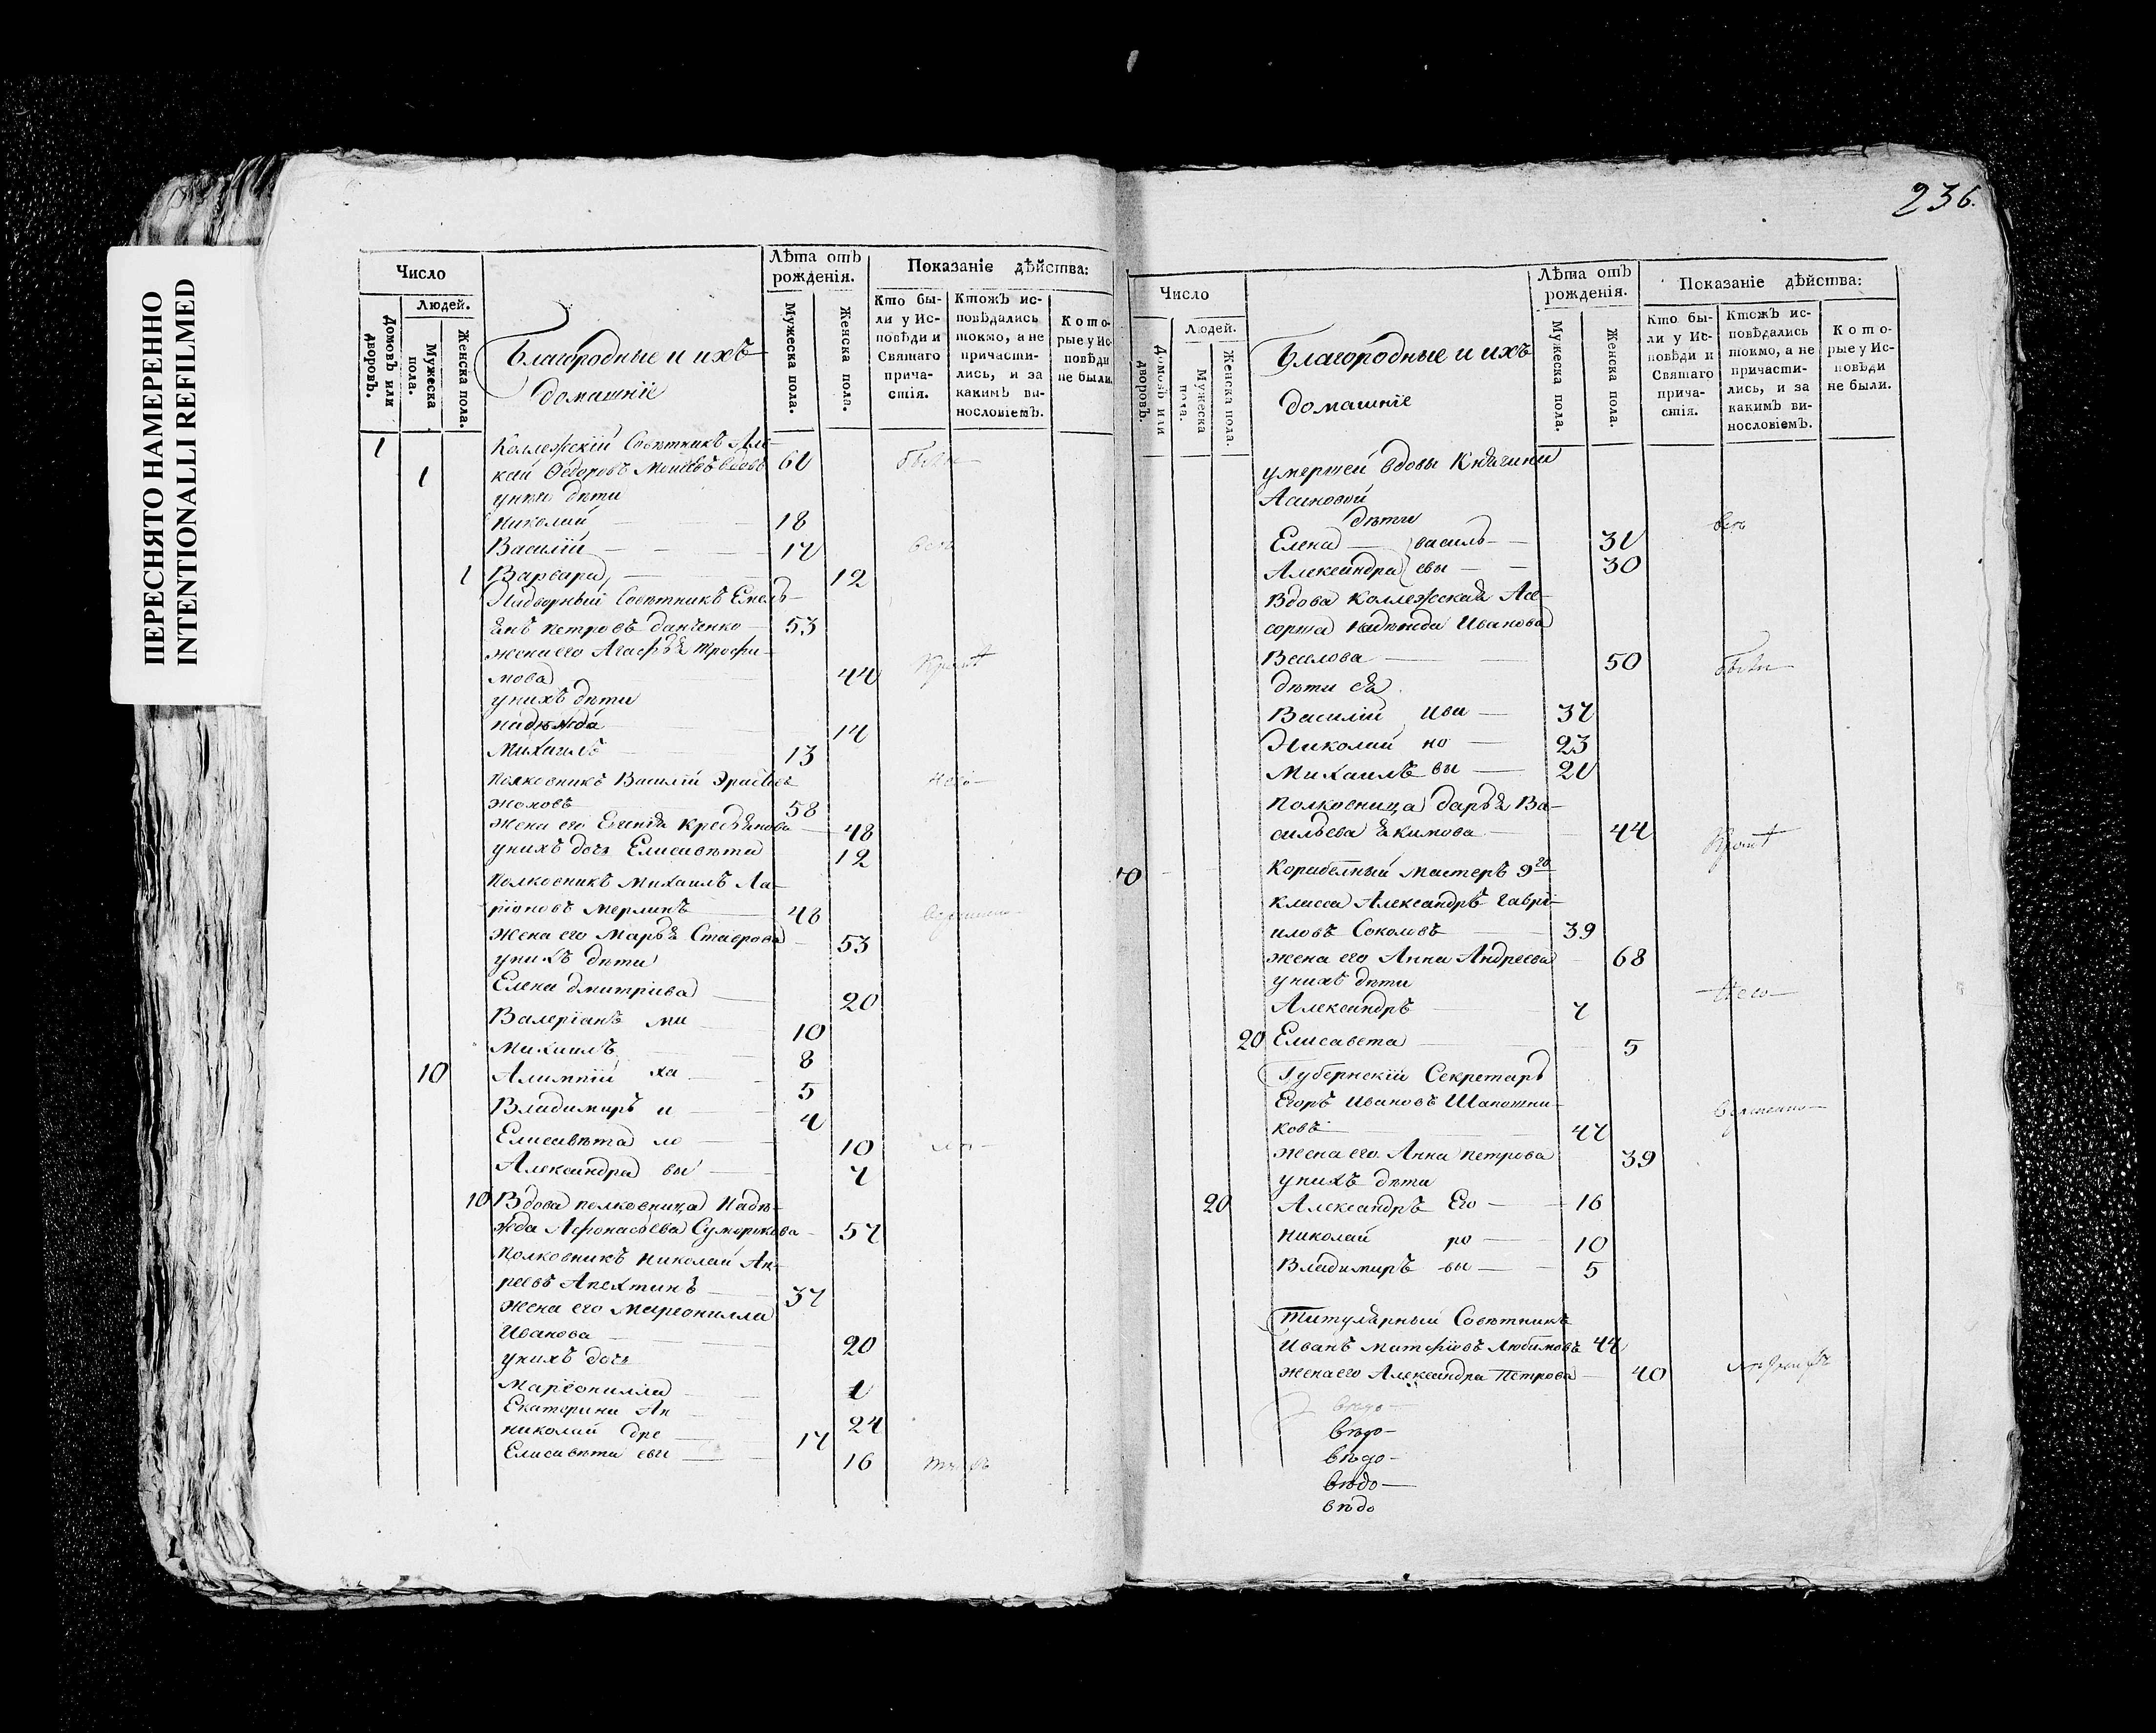 ПЕРЕСНЯТО НАМЕРЕННО
INTENTIONALLI REFILMED
Число
Людей.
Домовъ или дворовъ.
Мужеска пола.
Женска пола.
Благородные и ихъ
домашніе
Лѣта отъ
рожденія.
Мужеска пола.
Женска пола.
Показаніе дѣйства:
Кто бы-
ли у Ис-
повѣди и
Святаго
прича-
стія.
Ктожъ ис-
повѣдались
токмо, а не
причасти-
лись, и за
какимъ ви-
нословіемъ.
Кото-
рые у Ис-
повѣди
не были.
1 Коллежскій Совѣтникъ Але-
1 кѣй Федоровъ 61 были
у него дѣти
Николай 18
Василій 17 всѣ
1 Варвара 12
Надворный Совѣтникъ Емель-
янъ Петровъ Данченко 53
жена его Агафья Трофи-
мова 44
у нихъ дѣти
Надежда 14
Михаилъ 13
Полковникъ Василій
58
жена его 48
у нихъ дочь Елисавета 12
Полковникъ Михаилъ Ла-
ріоновъ Мерлинъ 48
жена его Марья Ставрова 53
у нихъ дѣти
Елена Дмитріева 20
Валеріанъ ми 10
Михаилъ 8
10 Алимпій ха 5
Владимиръ и 4
Елисавета ло 10
Александра вы 7
10 Вдова полковница Надѣ-
жда Афонасьева Суморокова 57
Полковникъ Николай Ан-
реевъ Апехтинъ 37
жена его Маріонилла
Иванова 20
у нихъ дочь
Маріонилла 1
Екатерина Ан 24
Николай дре 17
Елисавета евы 16
236.
Число
Людей.
Домовъ или дворовъ.
Мужеска пола.
Женска пола.
Благородные и ихъ
домашніе
Лѣта отъ
рожденія.
Мужеска пола.
Женска пола.
Показаніе дѣйства:
Кто бы-
ли у Ис-
повѣди и
Святаго
прича-
стія.
Ктожъ ис-
повѣдались
токмо, а не
причасти-
лись, и за
какимъ ви-
нословіемъ.
Кото-
рые у Ис-
повѣди
не были.
умершей вдовы Княгини
Асановой
дѣти всѣ
Елена василь 31
Александра евы 30
Вдова Коллежская Асе-
сорша Надежда Иванова
Веселова 50 были
дѣти ея
Василій Ива 37
Николай но 23
Михаилъ вы 21
Полковница Дарья Ва-
сильева Якимова 44
10 Корабелный Мастеръ 9го
класса Александръ Гаврі-
иловъ Соколовъ 39
жена его Анна Андреева 68
у нихъ дѣти
Александръ 7
20 Елисавета 5
Губернскій Секретарь
Егоръ Ивановъ Шапошни-
ковъ 47
жена его Анна Петрова 39
у нихъ дѣти
20 Александръ Его 16
Николай ро 10
Владимиръ вы 5
Титулярный Совѣтникъ
Иванъ Матфіевъ Любимовъ 44
жена его Александра Петрова 40
вѣдо
вѣдо
вѣдо
вѣдо
вѣдо